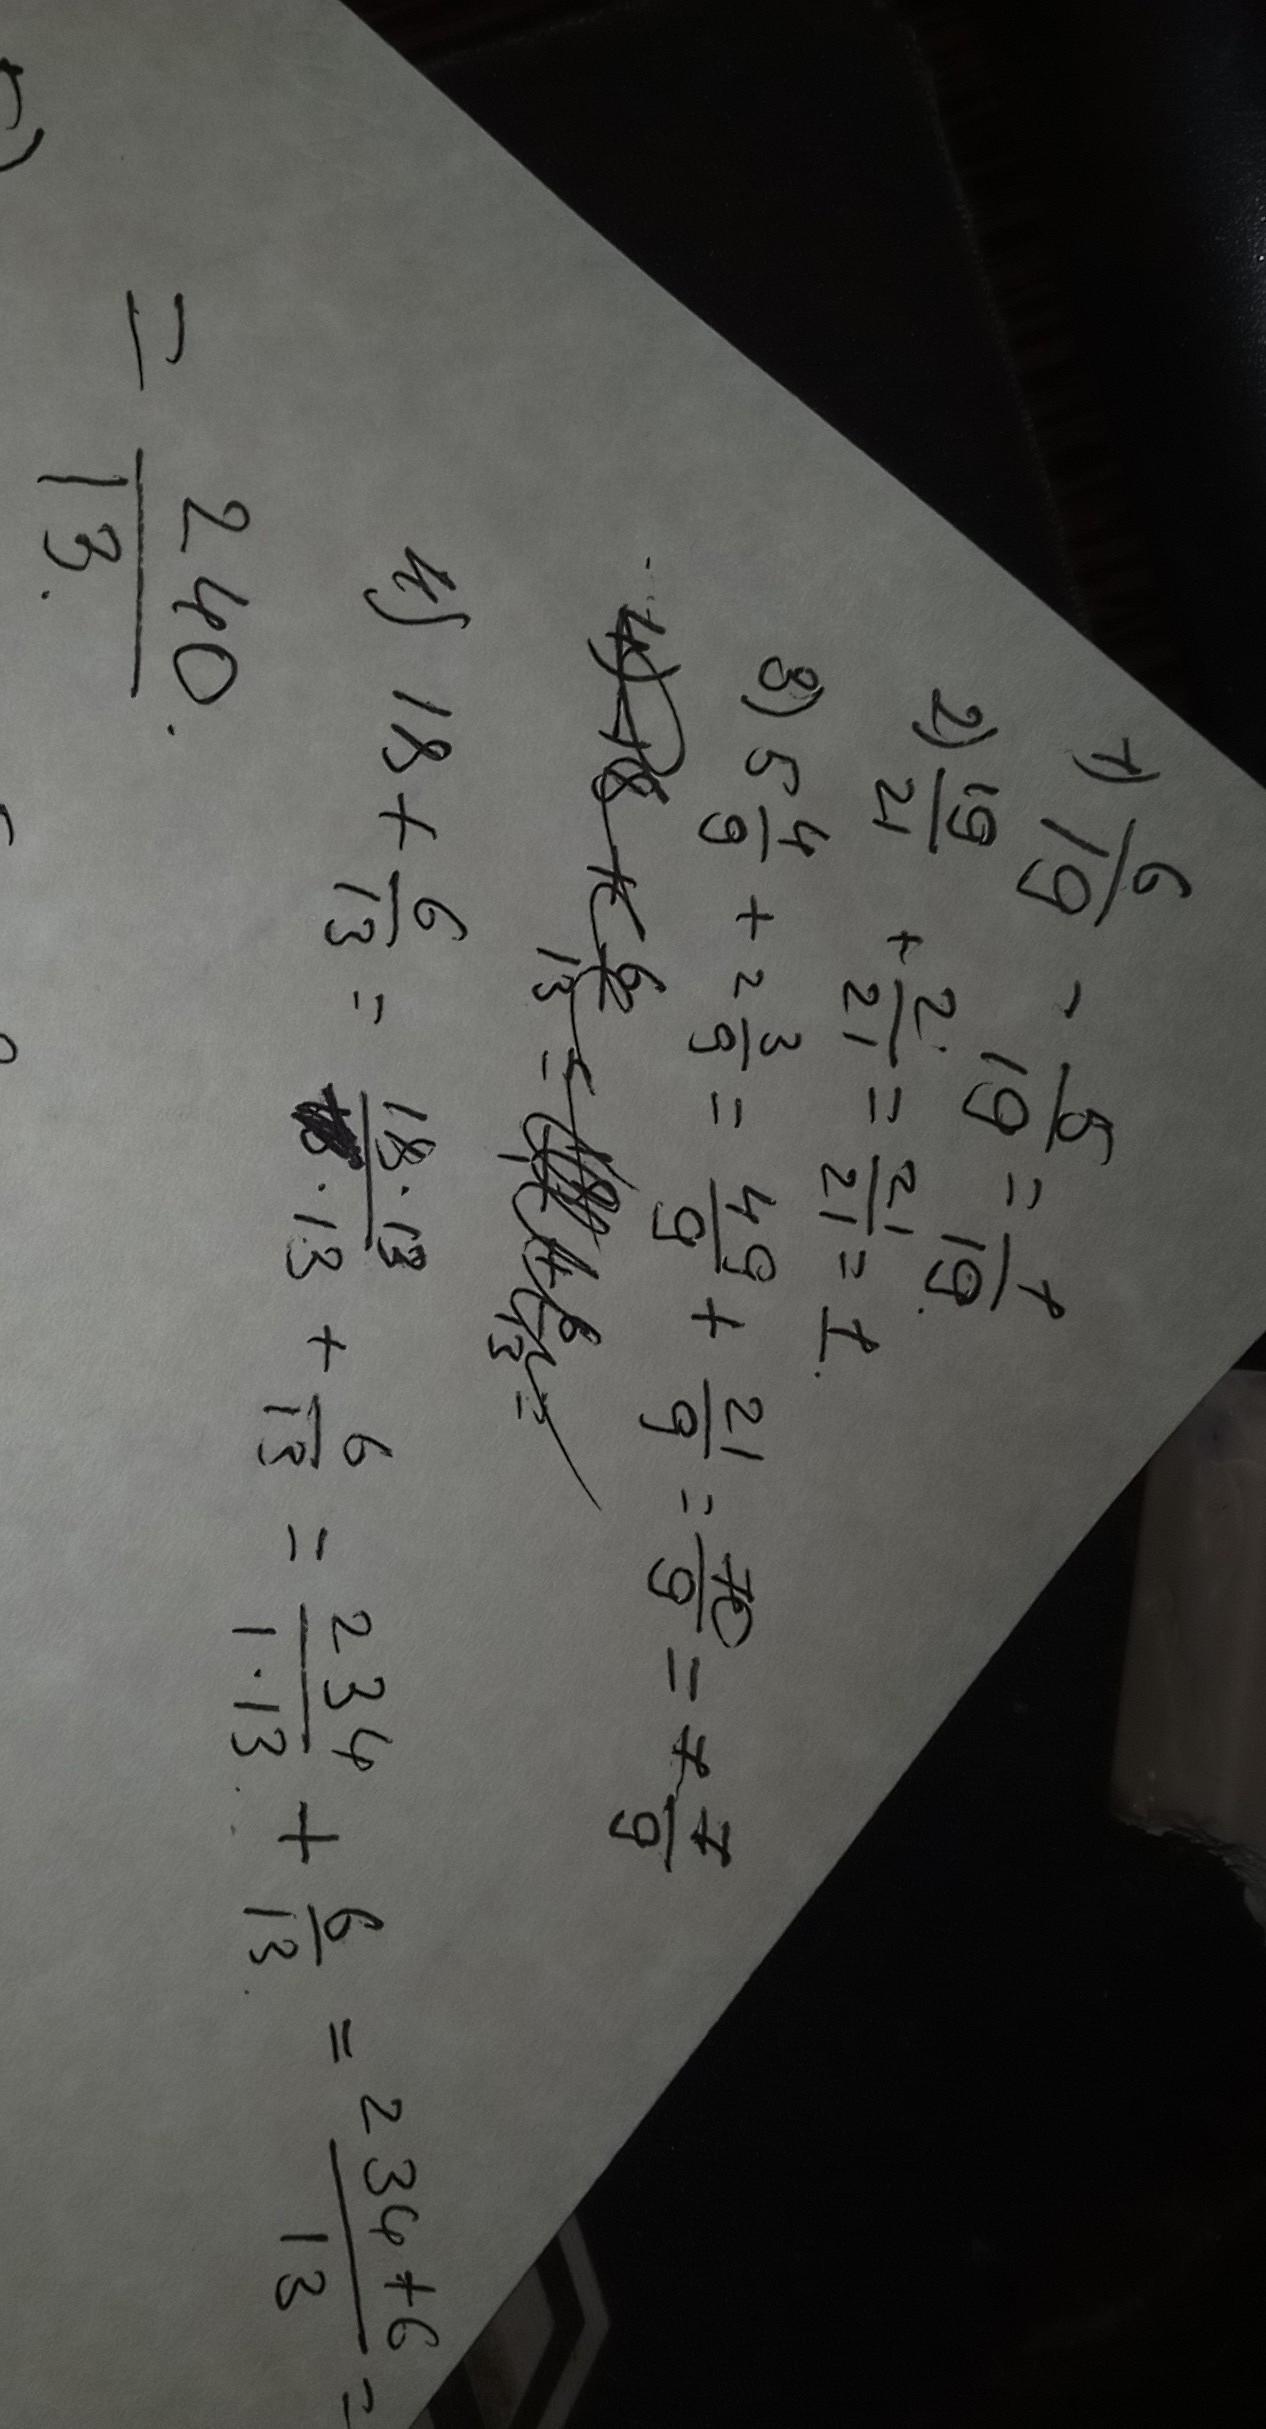 1) 6/19 - 5/19 = 1/19.
2) 19/21 + 2/21 = 21/21 = 1.
3) 5 4/9 + 2 3/9 = 49/9 + 21/9 = 70/9 = 7 7/9
4) 18 + 6/13 =
4) 18 + 6/13 = 18·13/·13 + 6/13 = 234/1·13 + 6/13 = 234+6/13 =
= 240/13.